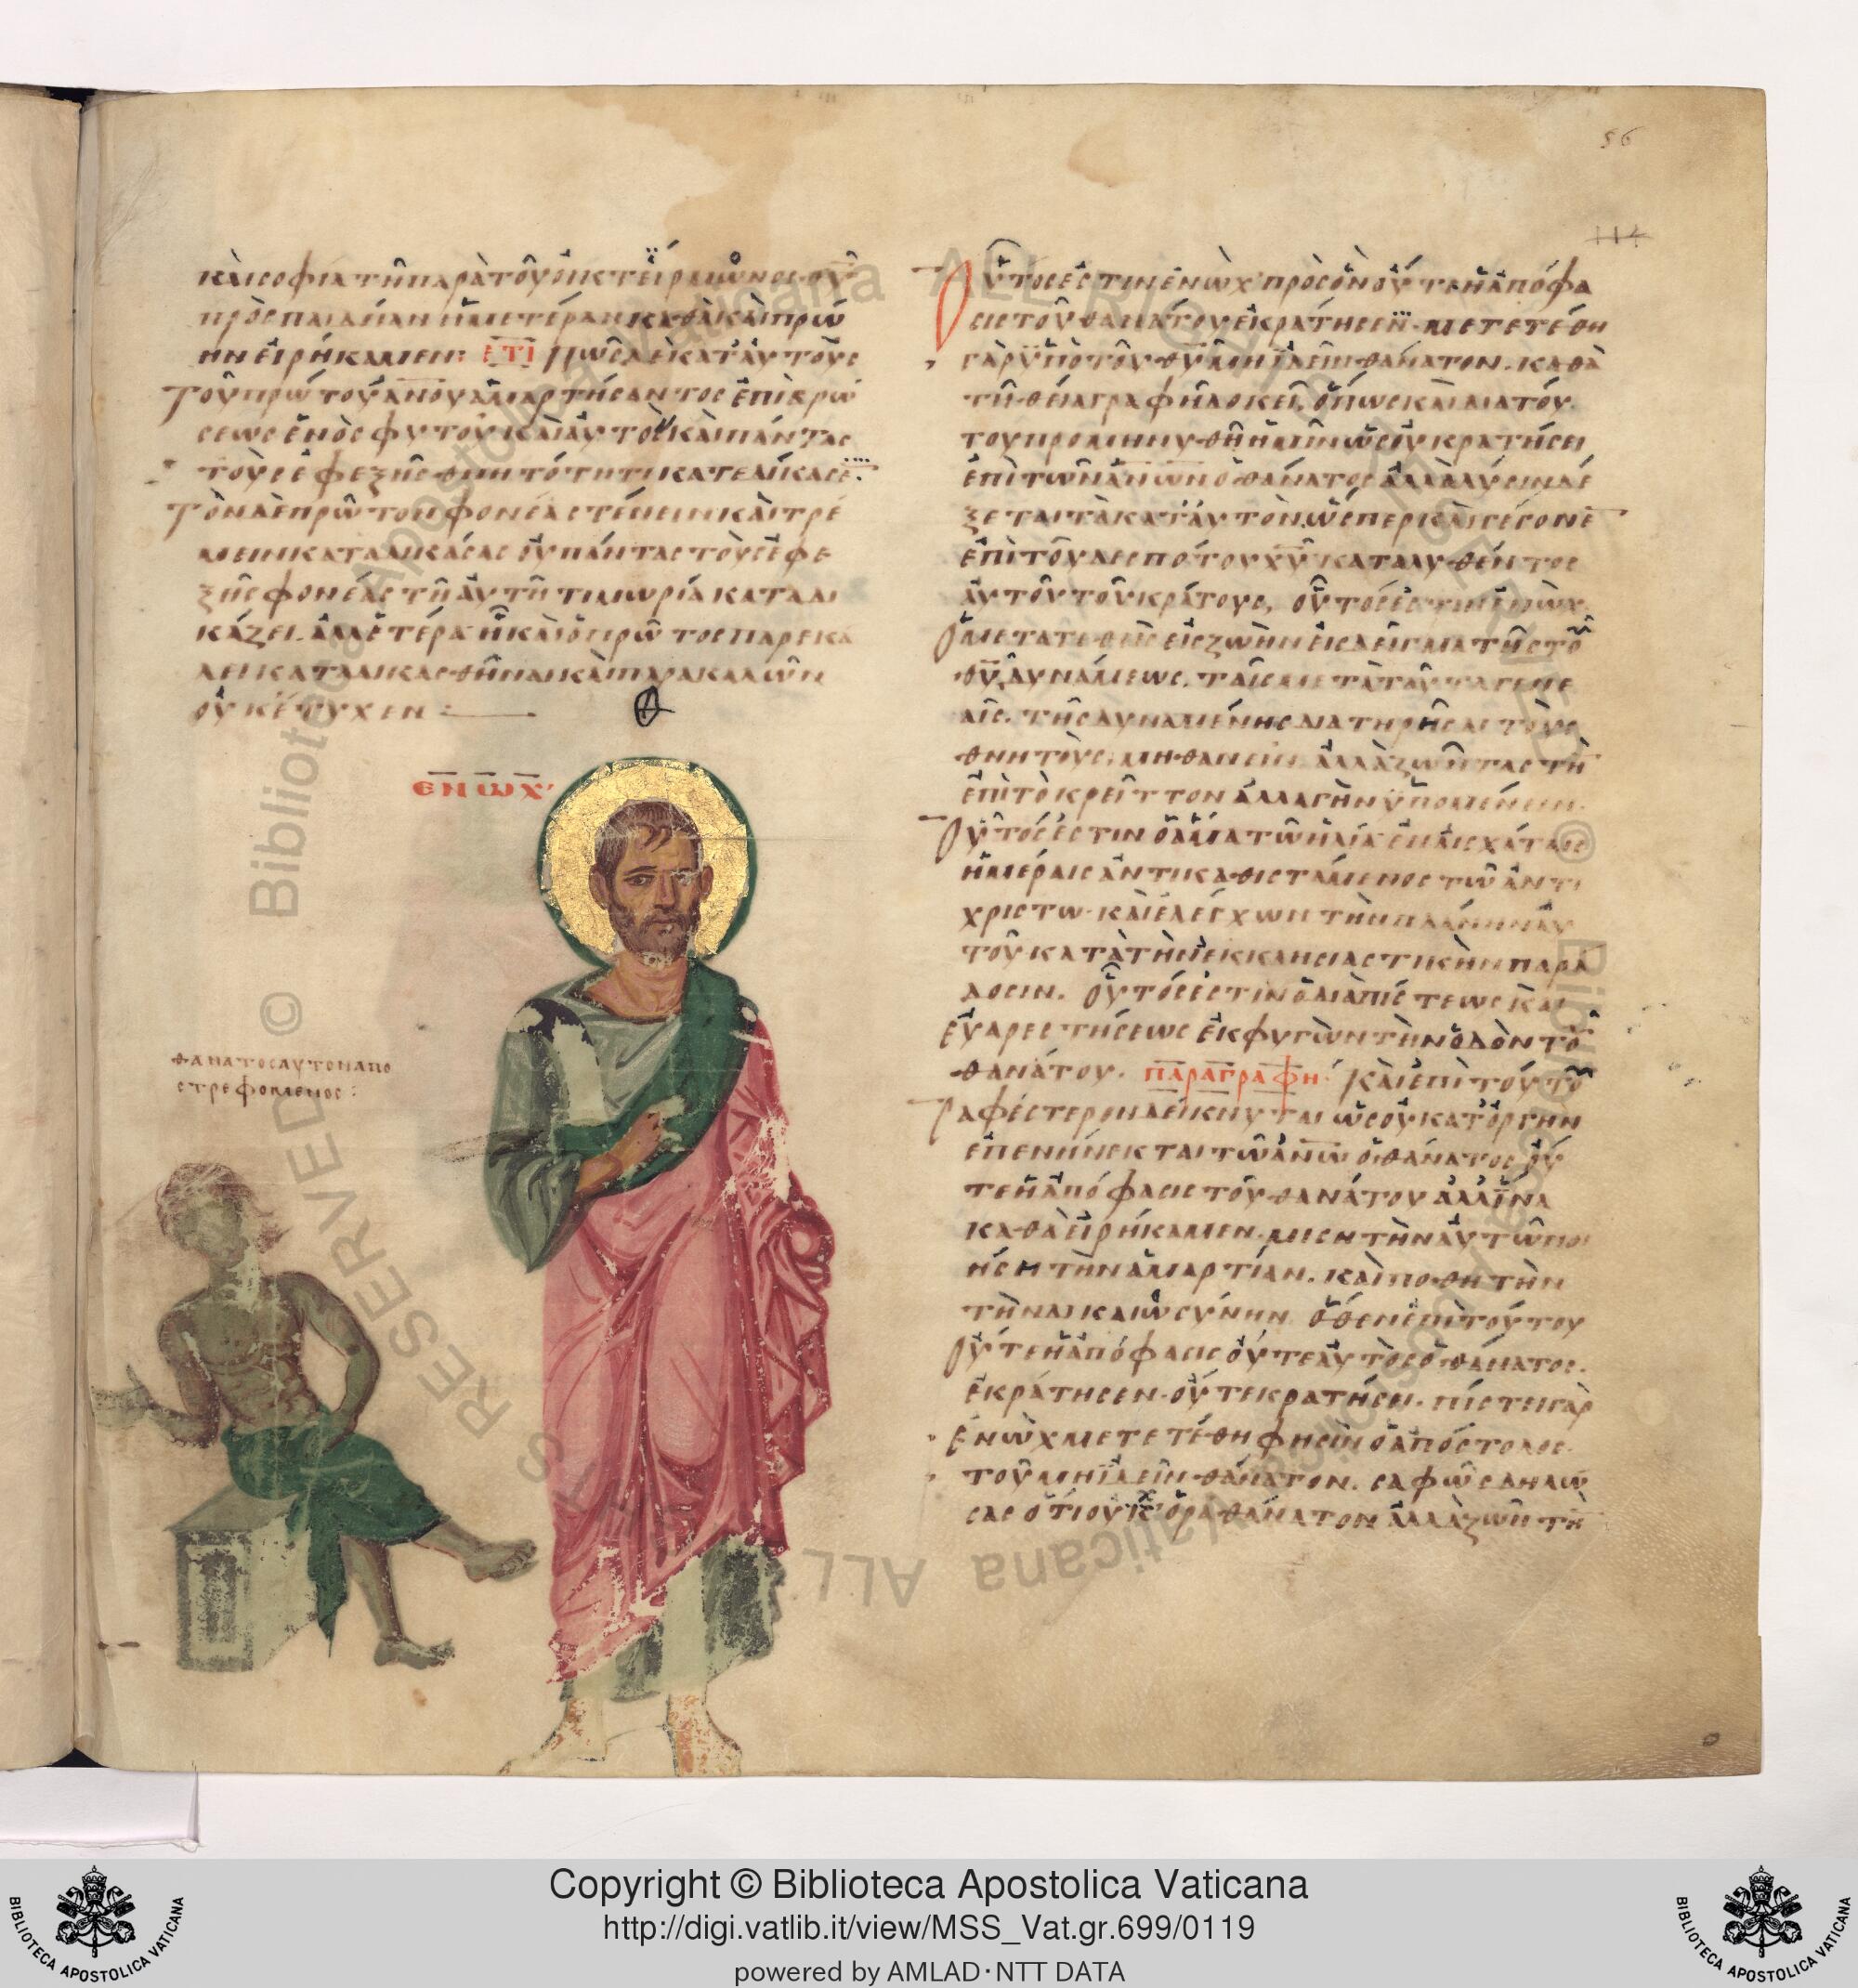 56
114
καὶ σοφία τῆ παρὰ τοῦ οἰκτείραμῶνος θυ
πρὸς παιδείαν ἡμετέραν καθὰ καὶ πρώ
ην εἰρήκαμεν: ΕΤΙ Πῶς δὲ κατ' αὐτοὺς
Τοῦ πρώτου ἀνου ἁμαρτήσαντος ἐπὶ βρώ
σεως ἑνὸς φυτοῦ καὶ αὐτὸν καὶ πάντας
τοὺς ἐφεξῆς θνητότητι κατεδίκασε.
Τὸν δὲ πρῶτον φονέα στένειν καὶ τρέ
μειν καταδικάσας οὐ πάντας τοὺς ἐφε
ξῆς φονέας τῆ αὐτῆ τιμωρία καταδι
κάζει. ἀλλ' ἑτέρα ἧ καὶ ὁ πρῶτος παρεκά
λει καταδικασθῆναι καὶ παρακαλῶν
οὐκ ἔτυχεν:
ΕΝΩΧ
θανατος αυτον απο
στρεφομενος:
Οὗτός ἐστιν ἐνὼχ πρὸς ὃν οὔτε ἡ ἀπόφα
σις τοῦ θανάτου ἐκράτησεν. μετετέθη
γὰρ ὑπὸ τοῦ θυ μὴ ἰδεῖν θάνατον. καθὰ
τῆ θεία γραφῆ δοκεῖ, ὅπως καὶ διὰ τού
του προμηνυθῆ ἡμῖν ὡς οὐ κρατήσει
ἐπὶ τῶν ἀνων ὁ θάνατος ἀλλὰ λύσιν δέ
ξεται τὰ κατ' αὐτὸν ὥσπερ καὶ γέγονε
ἐπὶ τοῦ δεσπότου χυ καταλυθέντος
αὐτοῦ τοῦ κράτους, οὗτός ἐστιν ἐνὼχ
Ὁ μετατεθεὶς εἰς ζωὴν εἰς δεῖγμα τῆς τοῦ
θυ δυνάμεως. ταῖς μετὰ ταῦτα γενε
αῖς. τῆς δυναμένης διατηρῆσαι τοὺς
θνητοὺς, μὴ θανεῖν ἀλλὰ ζῶντας τὴν
ἐπὶ τὸ κρεῖττον ἀλλαγὴν ὑπομένειν.
Οὗτός ἐστιν ὁ ἅμα τῶ ἠλία ἐν ταῖς ἐσχάταις
ἡμέραις ἀντικαθιστάμενος τῶ ἀντι
χρίστω. καὶ ἐλέγχων τὴν πλάνην αὐ
τοῦ κατὰ τὴν ἐκκλησιαστικὴν παρά
δοσιν. οὗτός ἐστιν ὁ διὰ πίστεως καὶ
εὐαρεστήσεως ἐκφυγὼν τὴν ὁδὸν τοῦ
θανάτου. ΠΑΡΑΓΡΑΦΗ Καὶ ἐπὶ τούτου
Σαφέστερον δείκνυται ὡς οὐ κατ' ὀργὴν
ἐπενήνεκται τῶ ἀνω ὁ θάνατος οὔ
τε ἡ ἀπόφασις τοῦ θανάτου ἀλλ' ἵνα
καθὰ εἰρήκαμεν. μισητὴν αὐτῶ ποι
ήση τὴν ἁμαρτίαν. καὶ ποθητὴν
τὴν δικαιοσύνην ὅθεν ἐπὶ τούτου
Οὔτε ἡ ἀπόφασις οὔτε αὐτὸς ὁ θάνατος.
ἐκράτησεν. οὔτε κρατήσει. πίστει γὰρ
ἐνὼχ μετετέθη φησὶν ὁ ἀπόστολος.
τοῦ μὴ ἰδεῖν θάνατον. σαφῶς δηλώ
σας ὅτι οὐχ ὁρᾶ θάνατον ἀλλὰ ζῶν τὴν
Copyright © Biblioteca Apostolica Vaticana
http://digi.vatlib.it/view/MSS_Vat.gr.699/0119
powered by AMLAD·NTT DATA
BIBLIOTECA APOSTOLICA VATICANA
BIBLIOTECA APOSTOLICA VATICANA